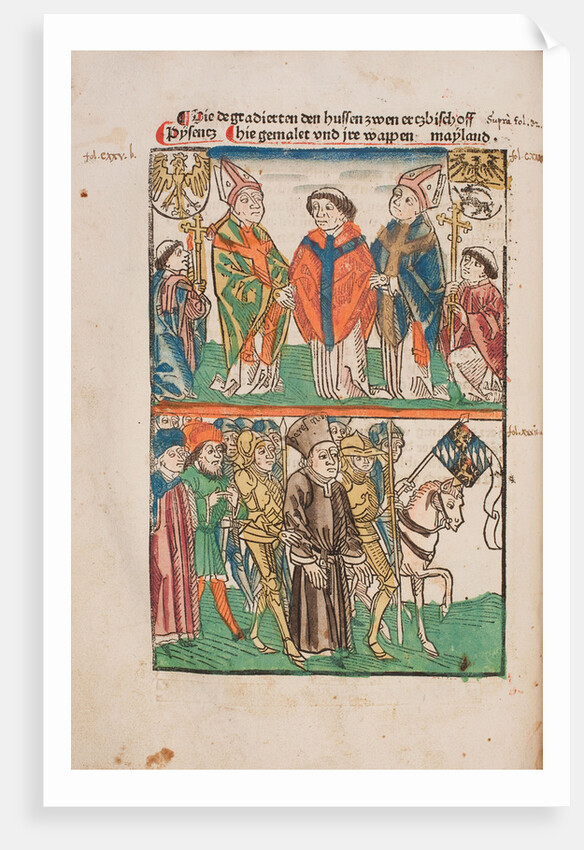 Die degradierten den hussen zwen ertzbischoff
Supra fol.
Pysentz hie gemalet vnd jre wappen mayland.
fol. cxxv. b.
fol. cxxv